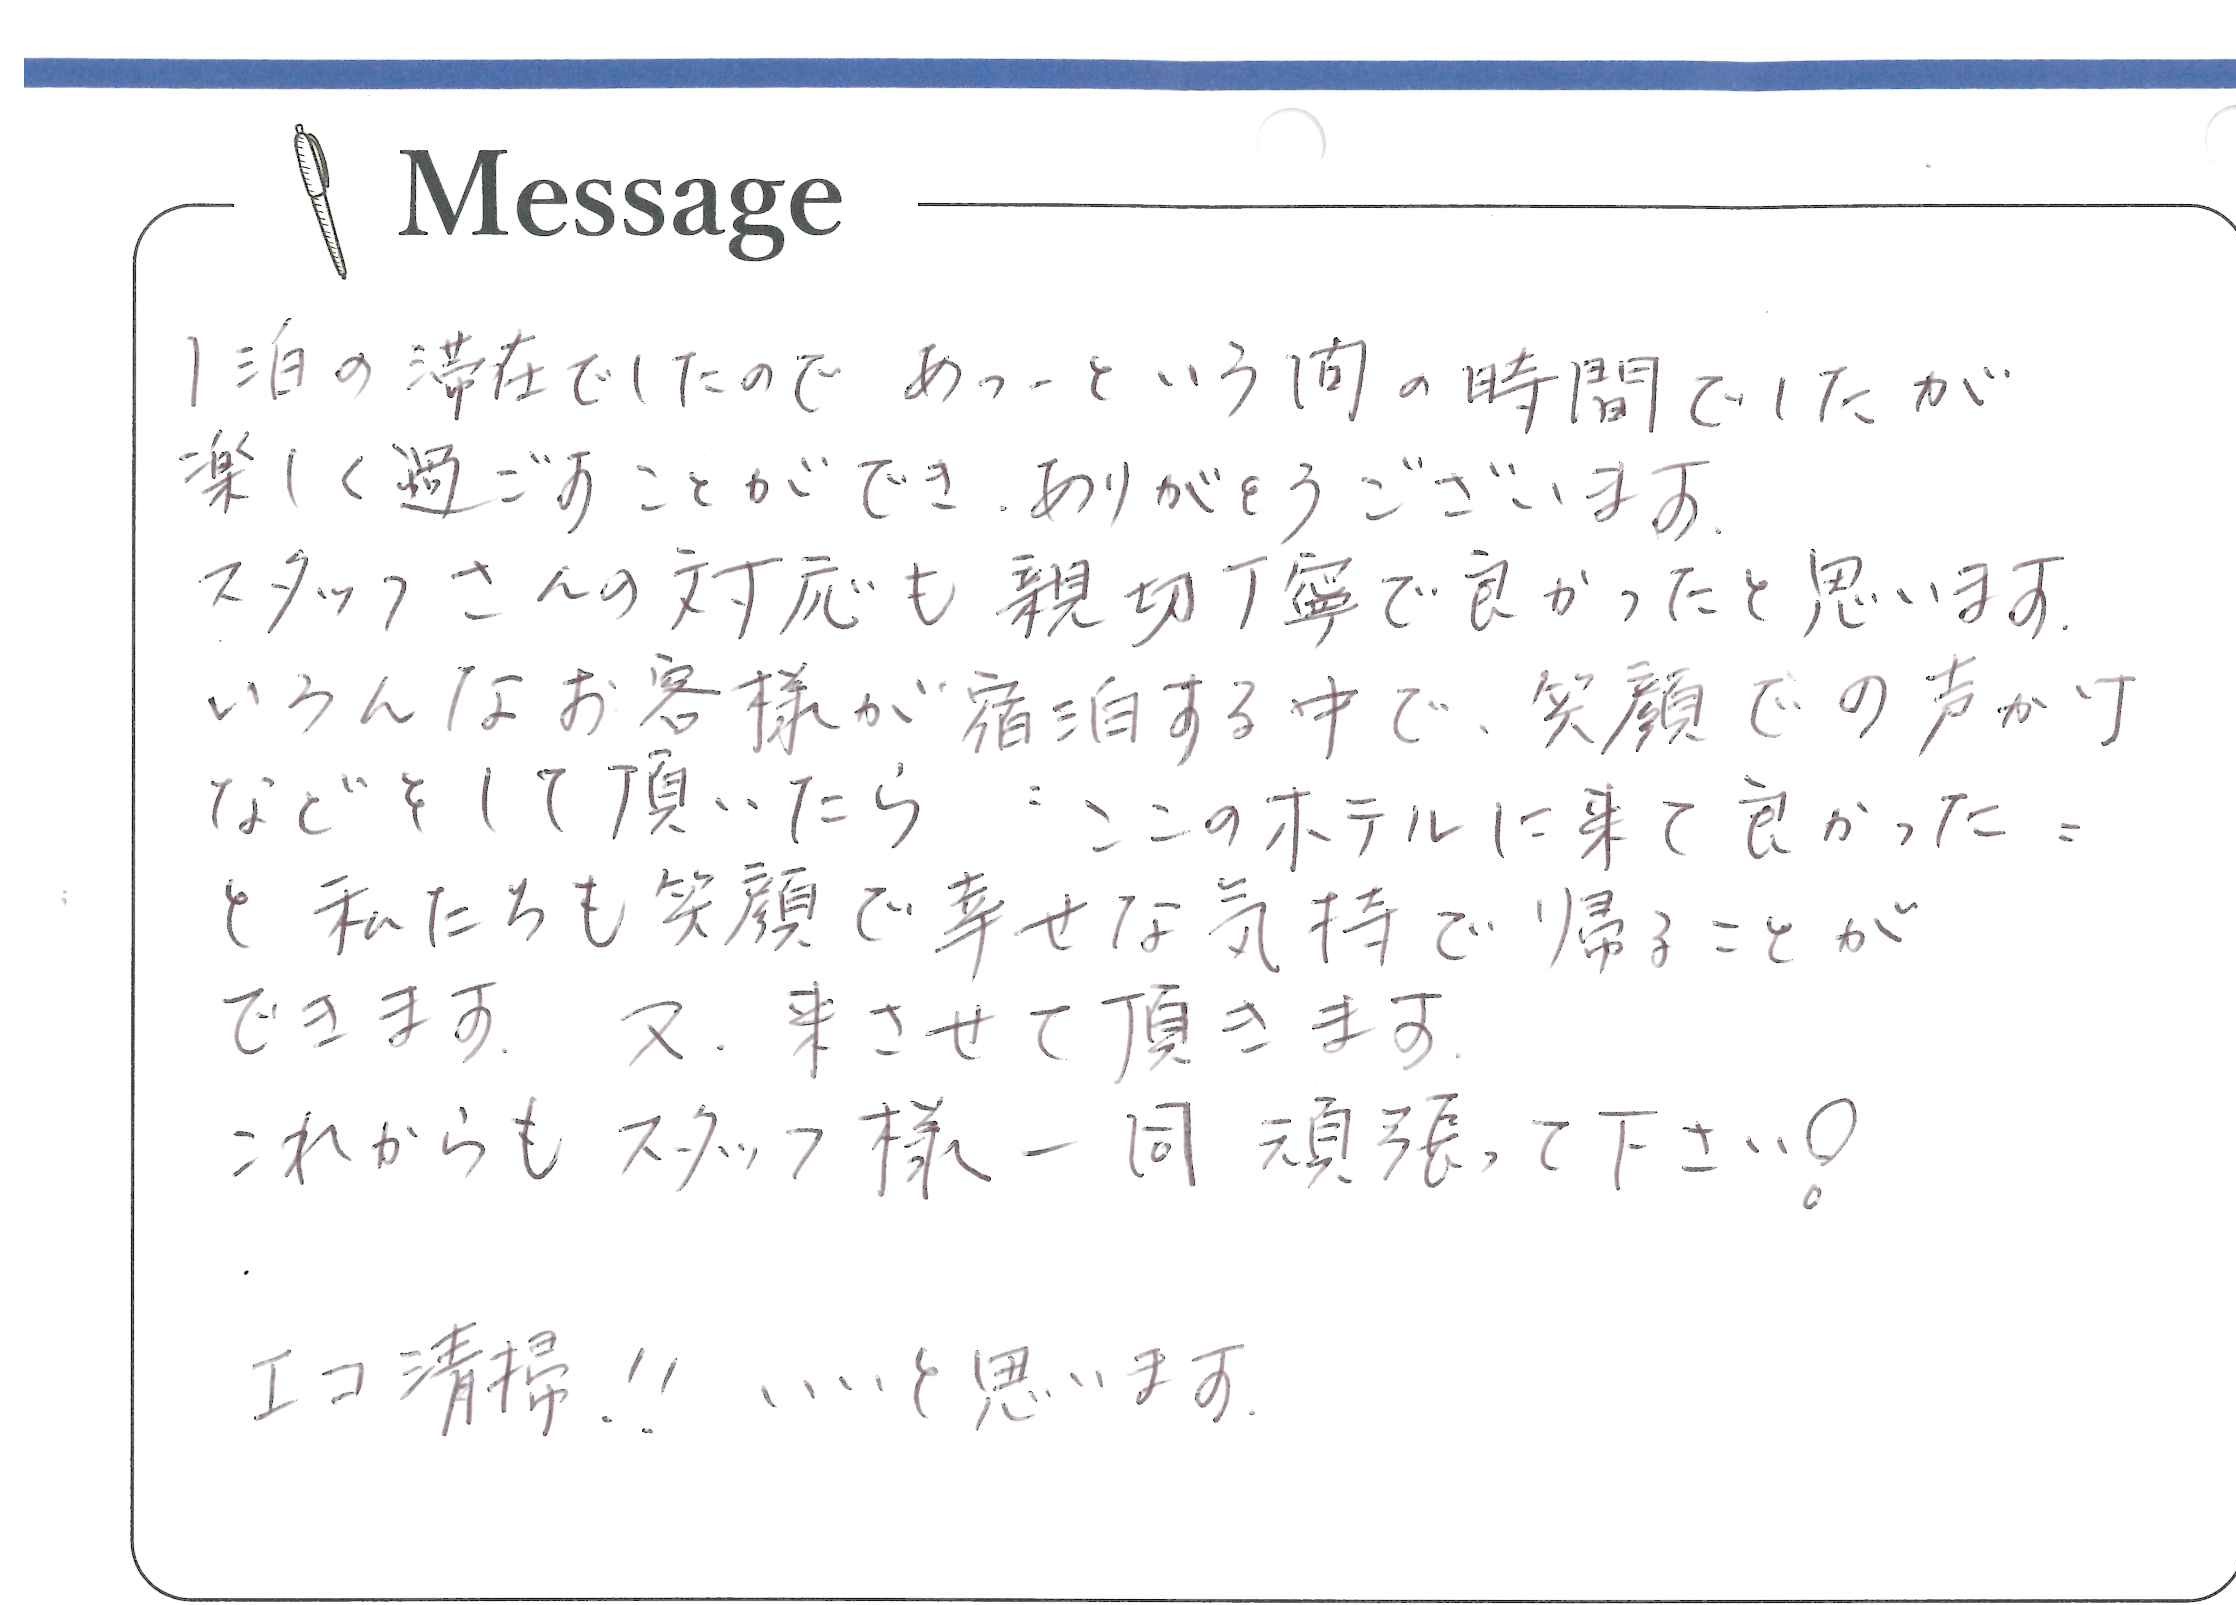 Message
1泊の滞在でしたので あっーという間の時間でしたが
楽しく過ごすことができ、ありがとうございます。
スタッフさんの対応も親切丁寧で良かったと思います。
いろんなお客様が宿泊する中で、笑顔での声かけ
などをして頂いたら "ここのホテルに来て良かった"
と私たちも笑顔で幸せな気持で帰ることが
できます。又、来させて頂きます。
これからもスタッフ様一同 頑張って下さい!
エコ清掃!! いいと思います。